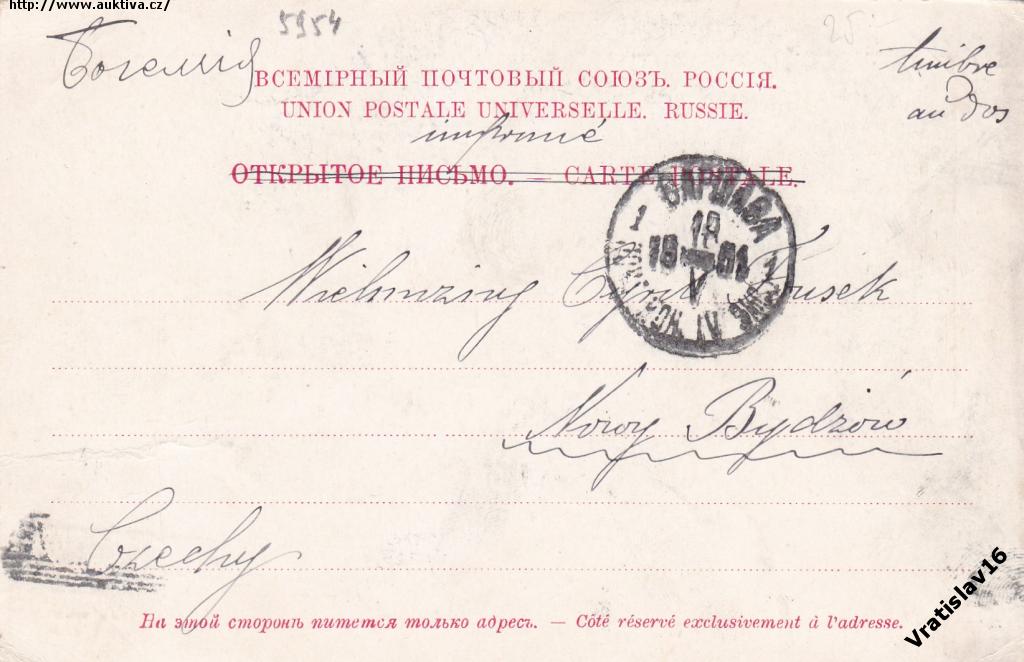 http://www.auktiva.cz/
5954
25
Богемія
timbre
au dos
ВСЕМІРНЫЙ ПОЧТОВЫЙ СОЮЗЪ. РОССІЯ.
UNION POSTALE UNIVERSELLE. RUSSIE.
imprimé
ОТКРЫТОЕ ПИСЬМО. — CARTE POSTALE.
ВАРШАВА
1 18 1
19 01
V
Fousek
Nowy Bydżów
Czechy
На этой сторонѣ пишется только адресъ. — Côté réservé exclusivement à l'adresse.
Vratislav16